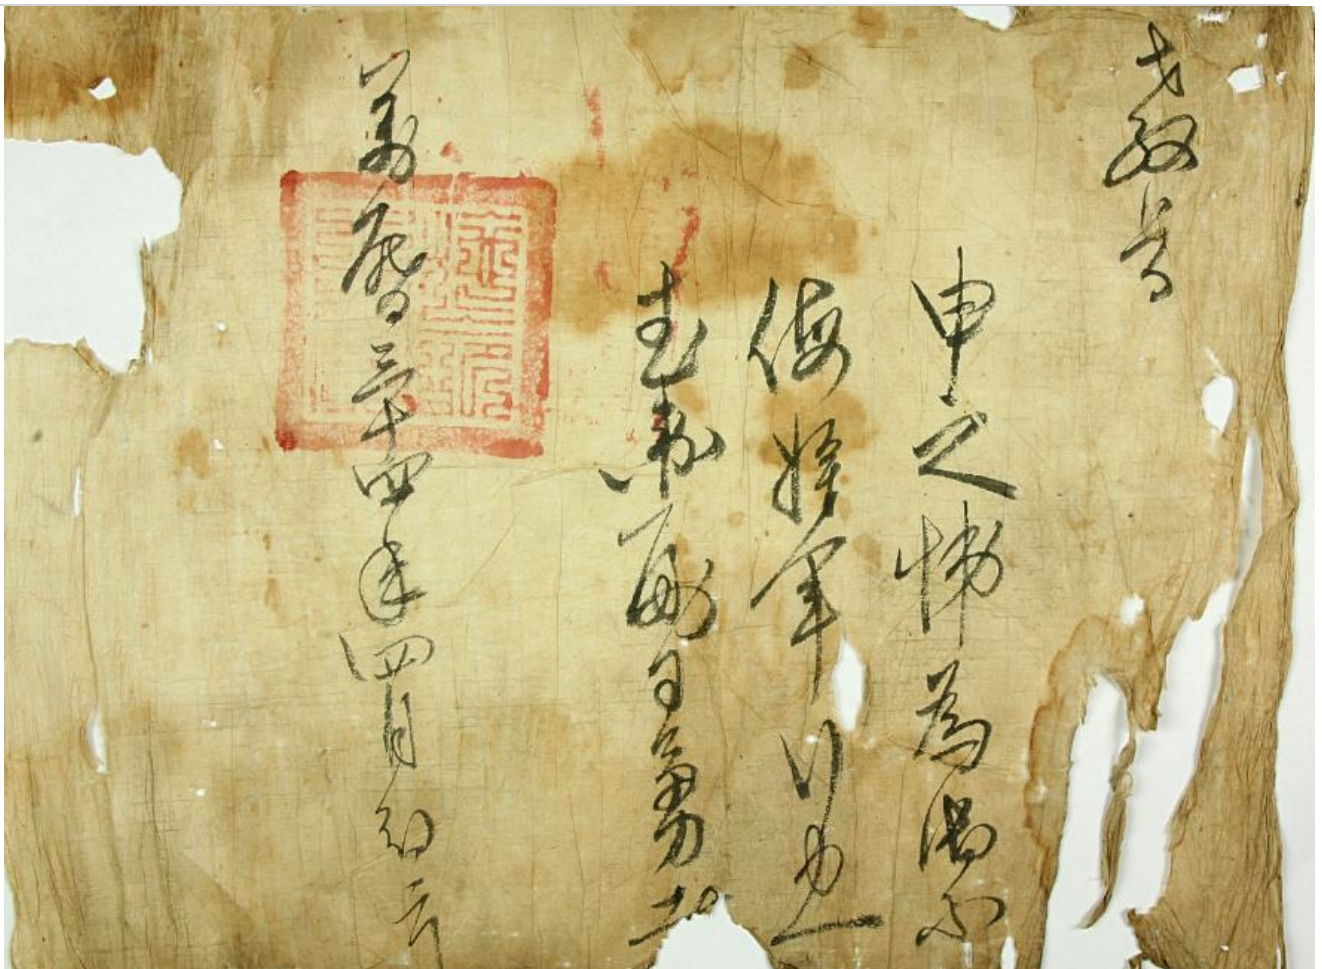 教旨
申之悌為禦
侮將軍行忠
武衛副司勇者
萬曆三十四年四月初